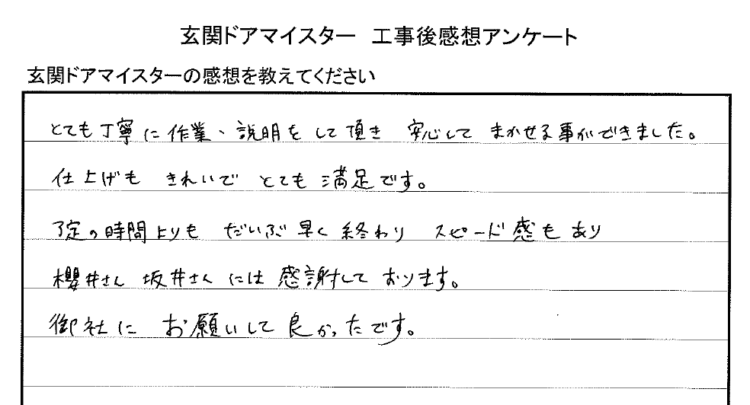 玄関ドアマイスター 工事後感想アンケート
玄関ドアマイスターの感想を教えてください
とても丁寧に作業、説明をして頂き 安心して まかせる事ができました。
仕上げも きれいで とても満足です。
予定の時間よりも だいぶ早く終わり スピード感もあり
櫻井さん 坂井さんには感謝しております。
御社に お願いして良かったです。